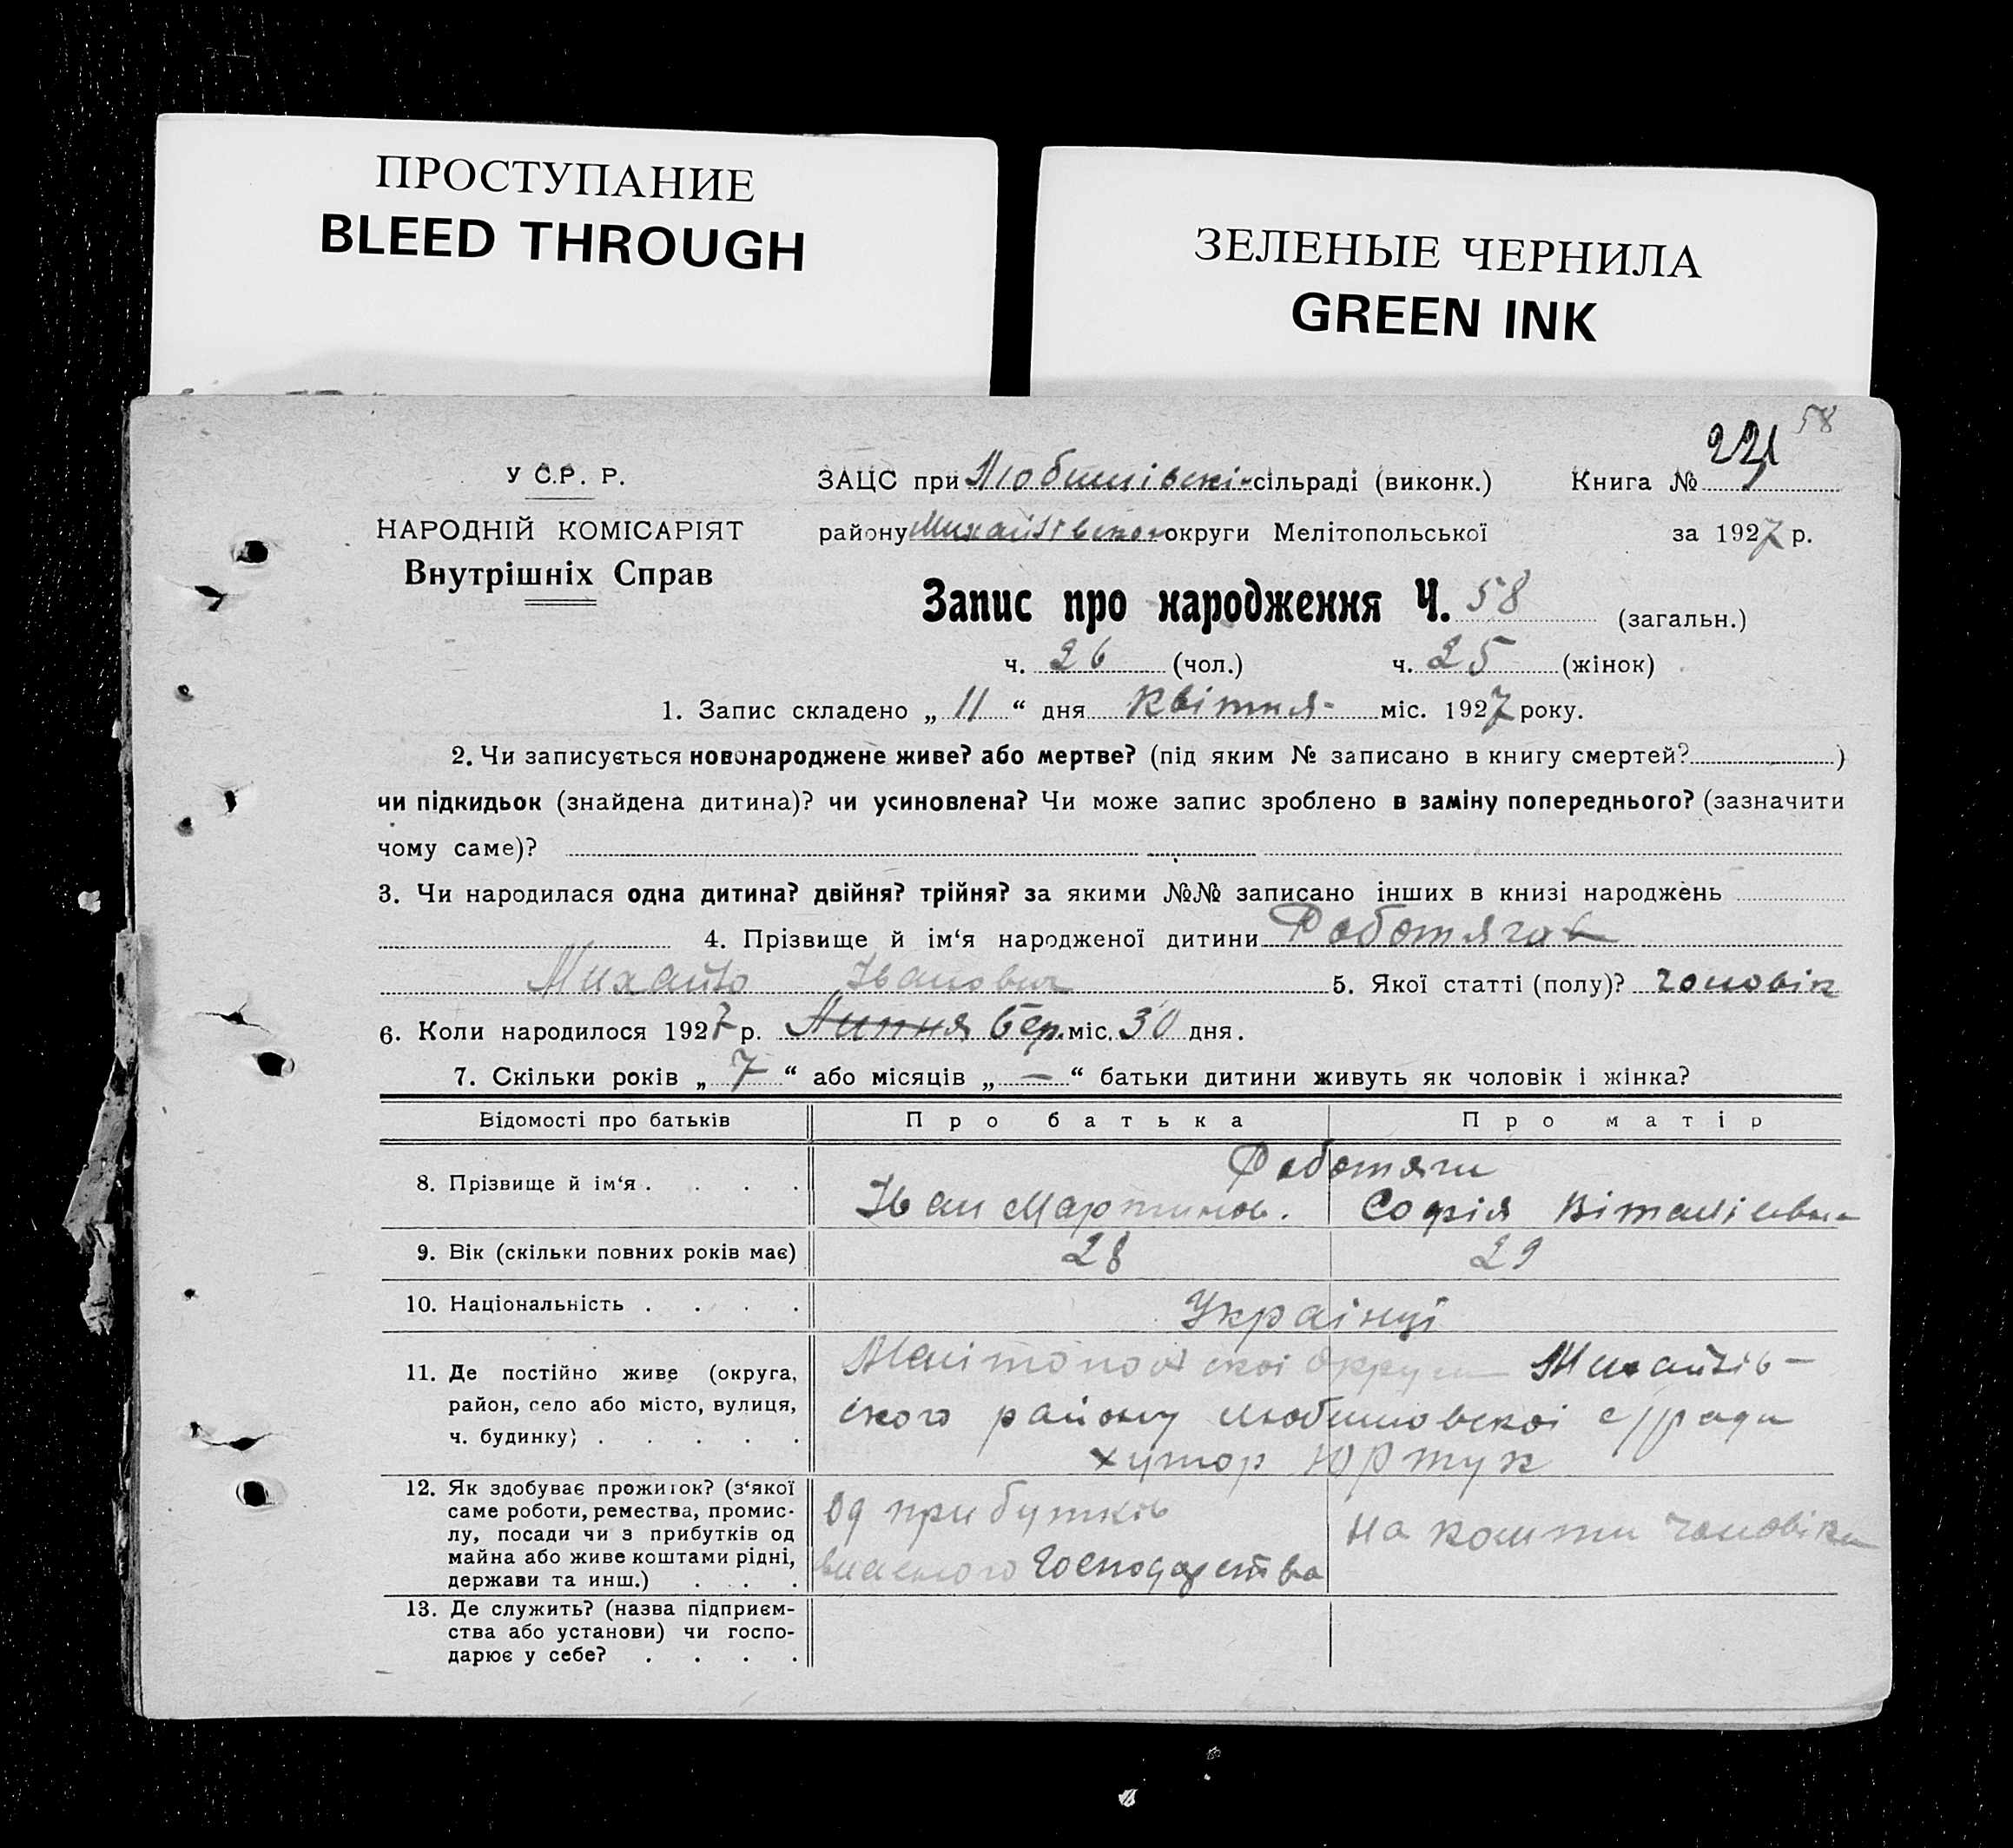 ПРОСТУПАНИЕ
BLEED THROUGH
ЗЕЛЕНЫЕ ЧЕРНИЛА
GREEN INK
58
У С.Р. Р.
НАРОДНІЙ КОМІСАРІЯТ
Внутрішніх Справ
ЗАЦС при Любимівскі сільраді (виконк.) Книга №
району округи Мелітопольської за 1927 р.
Запис про народження Ч. 58 (загальн.)
ч. 26 (чол.) ч. 25 (жінок)
1. Запис складено „ 11 “ дня Квітня міс. 1927 року.
2. Чи записується новонароджене живе? або мертве? (під яким № записано в книгу смертей? )
чи підкидьок (знайдена дитина)? чи усиновлена? Чи може запис зроблено в заміну попереднього? (зазначити
чому саме)?
3. Чи народилася одна дитина? двійня? трійня? за якими №№ записано інших в книзі народжень
4. Прізвище й ім‘я народженої дитини Роботяга
Михайло Іванович 5. Якої статті (полу)? чоловік
6. Коли народилося 1927 р. Липня бер. міс. 30 дня.
7. Скільки років „ 7 “ або місяців „ — “ батьки дитини живуть як чоловік і жінка?
Відомості про батьків Про батька Про матір
Роботяги
8. Прізвище й ім‘я . . . . Іван Мартинов. Софія Віталіевна
9. Вік (скільки повних років має) 28 29
10. Національність . . . . Украінці
11. Де постійно живе (округа, район, село або місто, вулиця, ч. будинку) . . . . .
Мелітопольскоі округи Михайлів-
ского району Любимовскоі с/ради
хутор Юртук
12. Як здобуває прожиток? (з‘якої саме роботи, ремества, промислу, посади чи з прибутків од майна або живе коштами рідні, держави та инш.) . . .
Од прибутків
власного Господарства
На кошти чоловіка
13. Де служить? (назва підприєм-
ства або установи) чи госпо-
дарює у себе? . . . .